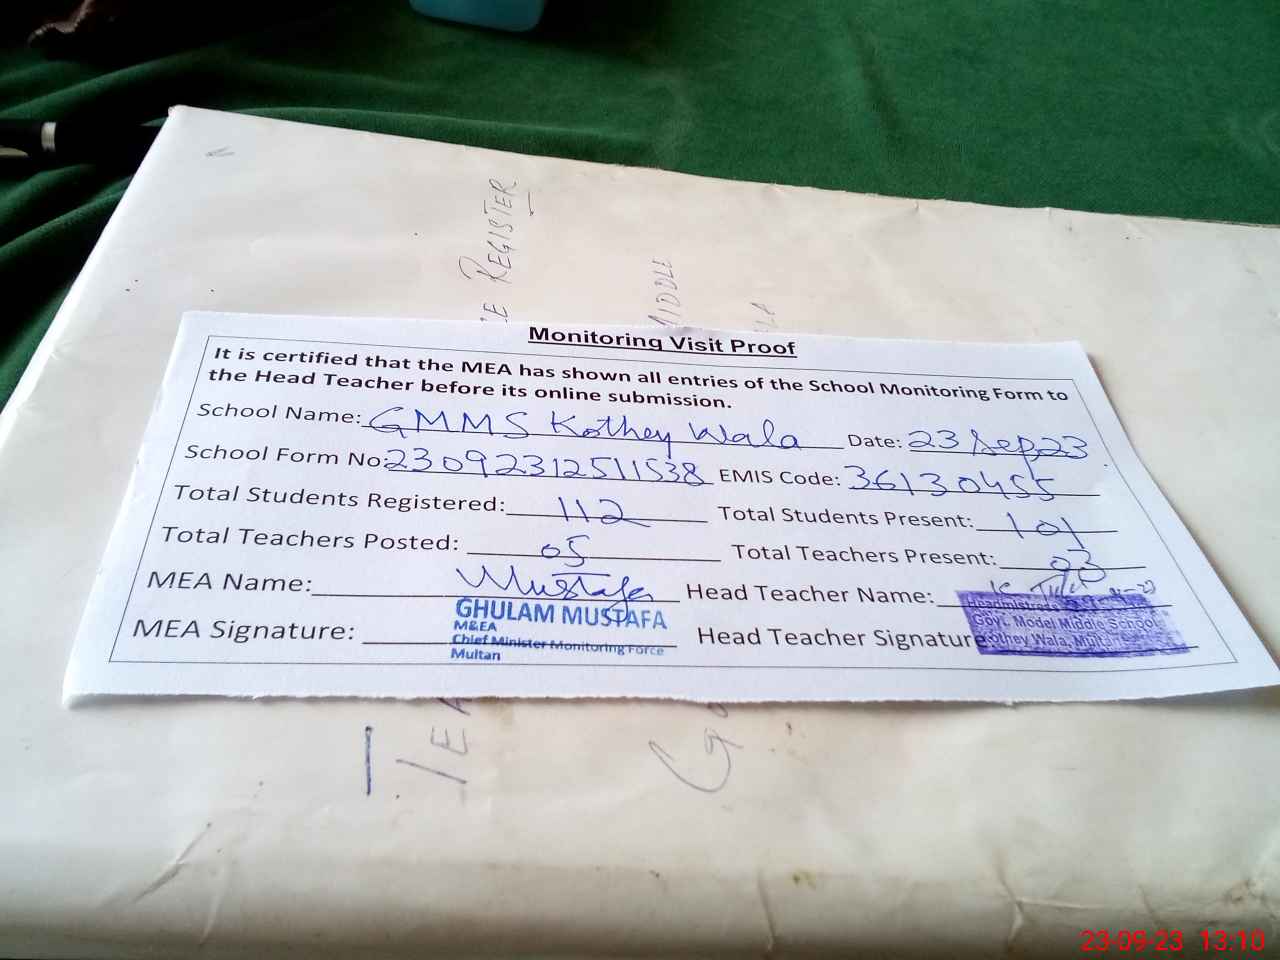 REGISTER
MIDDLE
Monitoring Visit Proof
It is certified that the MEA has shown all entries of the School Monitoring Form to
the Head Teacher before its online submission.
School Name: GMMS Kothey Wala Date: 23 Sep 23
School Form No: 23092312511538 EMIS Code: 36130455
Total Students Registered: 112 Total Students Present: 101
Total Teachers Posted: 05 Total Teachers Present: 03
MEA Name: Mustafa Head Teacher Name:
GHULAM MUSTAFA
M&EA
Chief Minister Monitoring Force
Multan
MEA Signature: Head Teacher Signature
Headmistress
Govt. Model Middle School
Kothey Wala, Multan
23-09-23 13:10